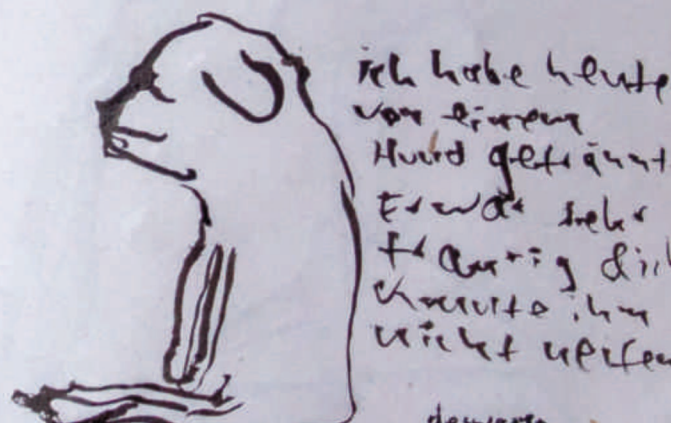 ich habe heute
von einem
Hund geträumt
Er war sehr
traurig & ich
konnte ihm
nicht helfen